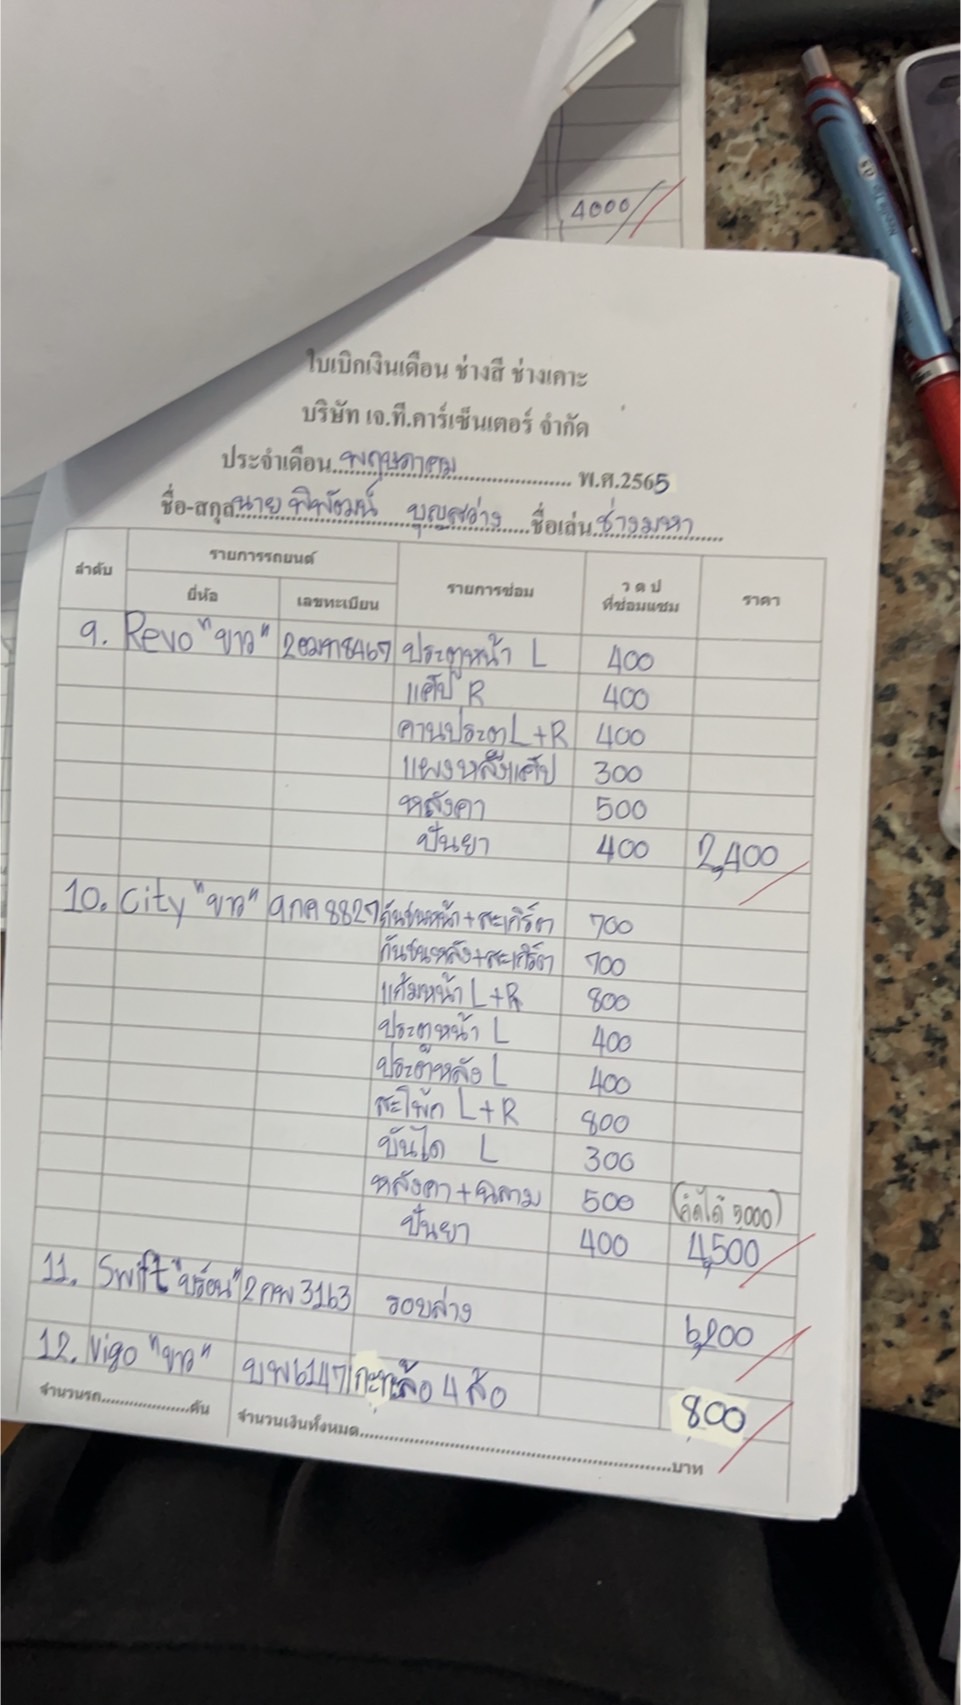 4000
ใบเบิกเงินเดือน ช่างสี ช่างเคาะ
บริษัท เจ.ที.คาร์เซ็นเตอร์ จำกัด
ประจำเดือน...พฤษภาคม... พ.ศ.2565
ชื่อ-สกุล นาย พิพัฒน์ บุญสว่าง ...ชื่อเล่น ช่างมหา
ลำดับ รายการรถยนต์ รายการซ่อม ว ด ป ที่ซ่อมแซม ราคา
ยี่ห้อ เลขทะเบียน
9. Revo "ขาว" 2ฒฑ8467 ประตูหน้า L 400
แค๊ป R 400
คานประตู L+R 400
แผงหลังแค๊ป 300
หลังคา 500
ปั่นยา 400 2,400
10. City "ขาว" 9กค 8827 กันชนหน้า+สะเกิร์ต 700
กันชนหลัง+สะเกิร์ต 700
แก้มหน้า L+R 800
ประตูหน้า L 400
ประตูหลัง L 400
สะโพก L+R 800
บันได L 300
หลังคา+ฉลาม 500 (คิดได้ 5000)
ปั่นยา 400 4,500
11. Swift "บรอน" 2กพ 3163 รอบล่าง 6,200
12. Vigo "ขาว" บพ6147 กะทะล้อ 4 ล้อ 800
จำนวนรถ...คัน จำนวนเงินทั้งหมด...บาท